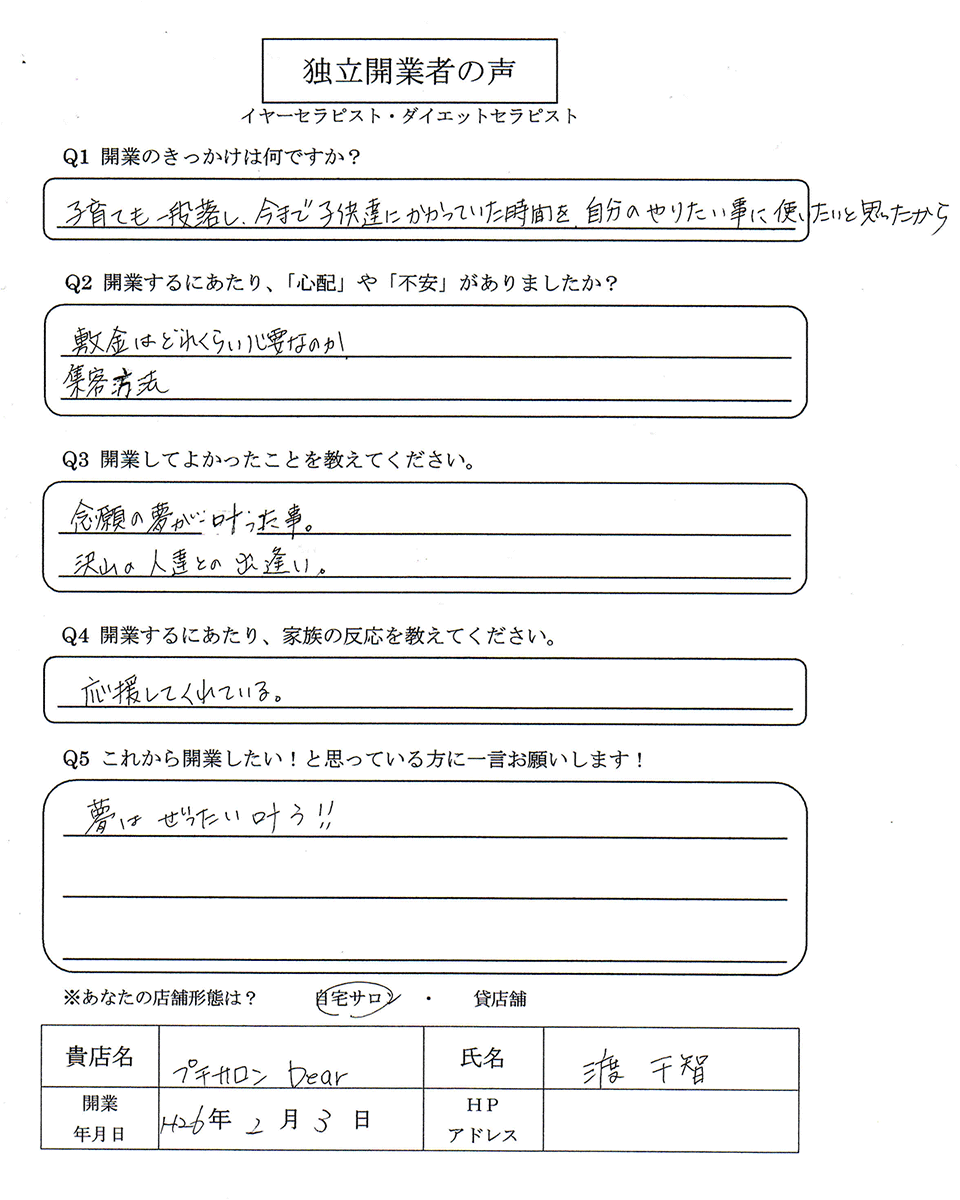 独立開業者の声
イヤーセラピスト・ダイエットセラピスト
Q1 開業のきっかけは何ですか？
子育ても一段落し、今まで子供達にかかっていた時間を、自分のやりたい事に使いたいと思ったから
Q2 開業するにあたり、「心配」や「不安」がありましたか？
敷金はどれくらい必要なのか
集客方法
Q3 開業してよかったことを教えてください。
念願の夢が叶った事。
沢山の人達との出逢い。
Q4 開業するにあたり、家族の反応を教えてください。
応援してくれている。
Q5 これから開業したい！と思っている方に一言お願いします！
夢はぜったい叶う!!
※あなたの店舗形態は？ 自宅サロン ・ 貸店舗
貴店名 プチサロン Dear 氏名 渡 千智
開業年月日 H26年 2月 3日 HPアドレス